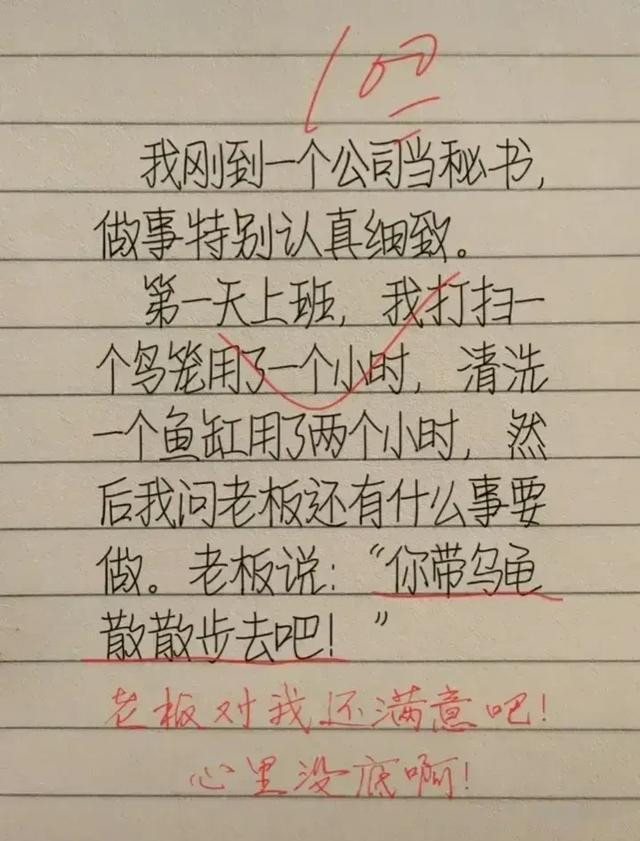 100
我刚到一个公司当秘书，
做事特别认真细致。
第一天上班，我打扫一
个鸟笼用了一个小时，清洗
一个鱼缸用了两个小时，然
后我问老板还有什么事要
做。老板说：“你带乌龟
散散步去吧！”
老板对我还满意吧！
心里没底啊！